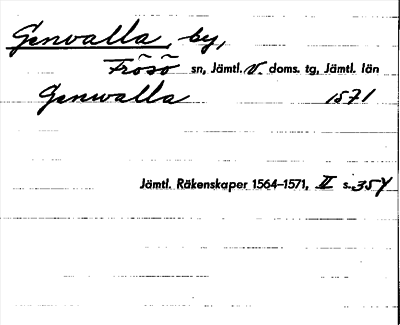 Genvalla, by,
Frösö sn, Jämtl. v. doms. tg, Jämtl. län
Genwalla 1571
Jämtl. Räkenskaper 1564–1571, II s. 354